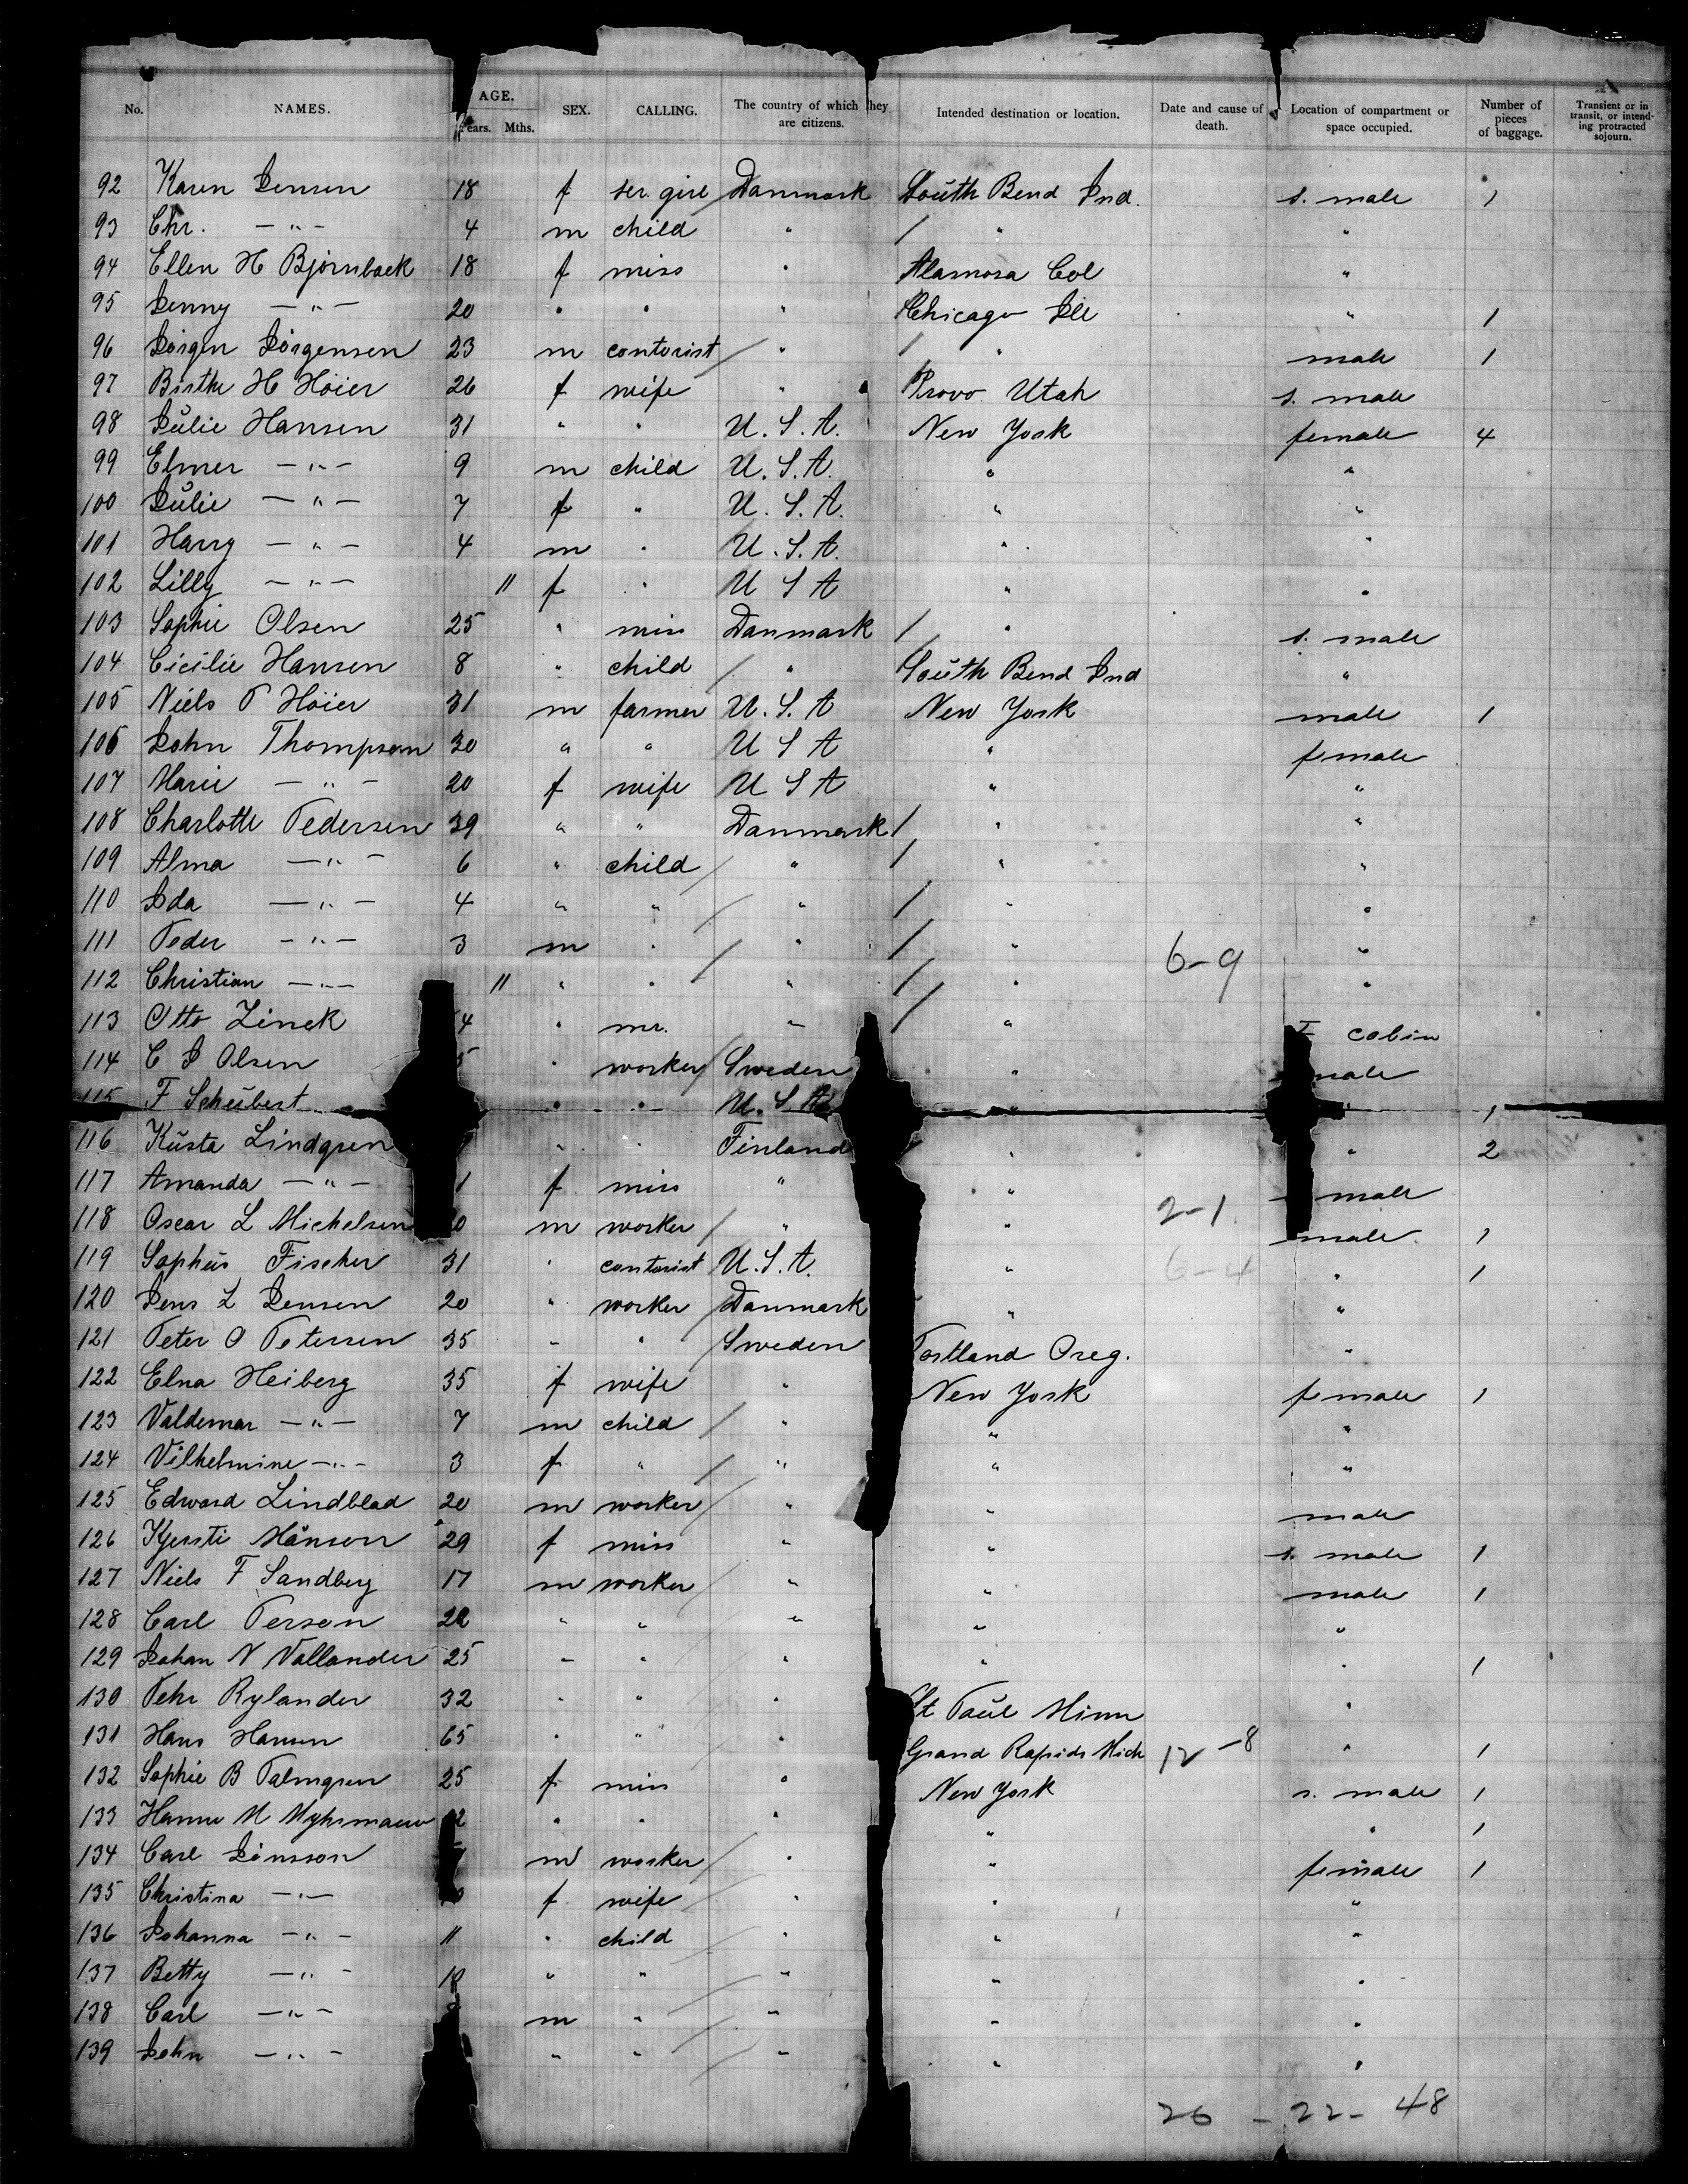 No. NAMES. AGE. Years. Mths. SEX. CALLING. The country of which they are citizens. Intended destination or location. Date and cause of death. Location of compartment or space occupied. Number of pieces of baggage. Transient or in transit, or intending protracted sojourn.
92 Karen Jensen 18 f ser. girl Danmark South Bend Ind. s. male 1
93 Chr. —"— 4 m child " / " "
94 Ellen H Bjørnbaek 18 f miss " Alamosa Col "
95 Jenny —"— 20 " " " Chicago Ill " 1
96 Jörgen Jörgensen 23 m contorist / " / " male 1
97 Birthe H Höier 26 f wife " Provo Utah s. male
98 Julie Hansen 31 " " U. S. A. New York female 4
99 Elmer —"— 9 m child U. S. A. " "
100 Julie —"— 7 f " U. S. A. " "
101 Harry —"— 4 m " U. S. A. " "
102 Lilly —"— 11 f " U S A " "
103 Sophie Olsen 25 " miss Danmark / " s. male
104 Cicilie Hansen 8 " child / " South Bend Ind "
105 Niels P Höier 31 m farmer U. S. A New York male 1
106 John Thompson 30 " " U S A " female
107 Marie —"— 20 f wife U S A " "
108 Charlotte Pedersen 39 " " Danmark / " "
109 Alma —"— 6 " child / " / " "
110 Ida —"— 4 " " / " / " "
111 Peder —"— 3 m " / " / " 6-9 "
112 Christian —"— 11 " " " / " "
113 Otto Zinck 4 " mr. " / " cabin
114 C J Olsen 5 " worker / Sweden " male
115 F Schubert " " U. S. A. " " 1
116 Kusta Lindgren " " Finland " " 2
117 Amanda —"— 1 f miss " " male
118 Oscar L Michelsen 0 m worker / " " 2-1 male 1
119 Sophus Fischer 31 " contorist U. S. A. " 6-4 " 1
120 Jens L Jensen 20 " worker / Danmark " "
121 Peter O Petersen 35 " " / Sweden Portland Oreg. "
122 Elna Heiberg 35 f wife " New York female 1
123 Valdemar —"— 7 m child / " " "
124 Vilhelmine —"— 3 f " / " " "
125 Edward Lindblad 20 m worker / " " male
126 Kjersti Månson 29 f miss " " s. male 1
127 Niels F Sandberg 17 m worker / " " male 1
128 Carl Person " " / " " "
129 Johan N Vallander 25 " " / " " " 1
130 Pehr Rylander 32 " " / " St Paul Minn "
131 Hans Hansen 65 " " / " Grand Rapids Mich 12-8 " 1
132 Sophie B Palmgren 25 f miss " New York s. male 1
133 Hanne M 2 " " " " " 1
134 Carl Jönsson m worker / " " female 1
135 Christina —"— f wife / " " "
136 Johanna —"— 11 " child / " " "
137 Betty —"— " " / " " "
138 Carl —"— m " / " " "
139 John —"— " " / " " "
26 - 22 - 48